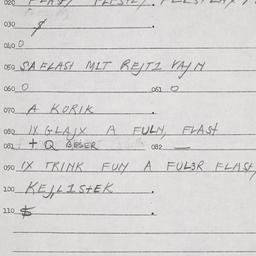 020
030 $
040 O
050 SA FLASH MIT REJTI VAJN
060 O 061 O
070 A KORIK
080 IX GLAJX A FULN, FLASH
081 + Q BESER 082 —
090 IX TRINK FUM A FULER FLASH,
100 KEJLISTEK
110 $